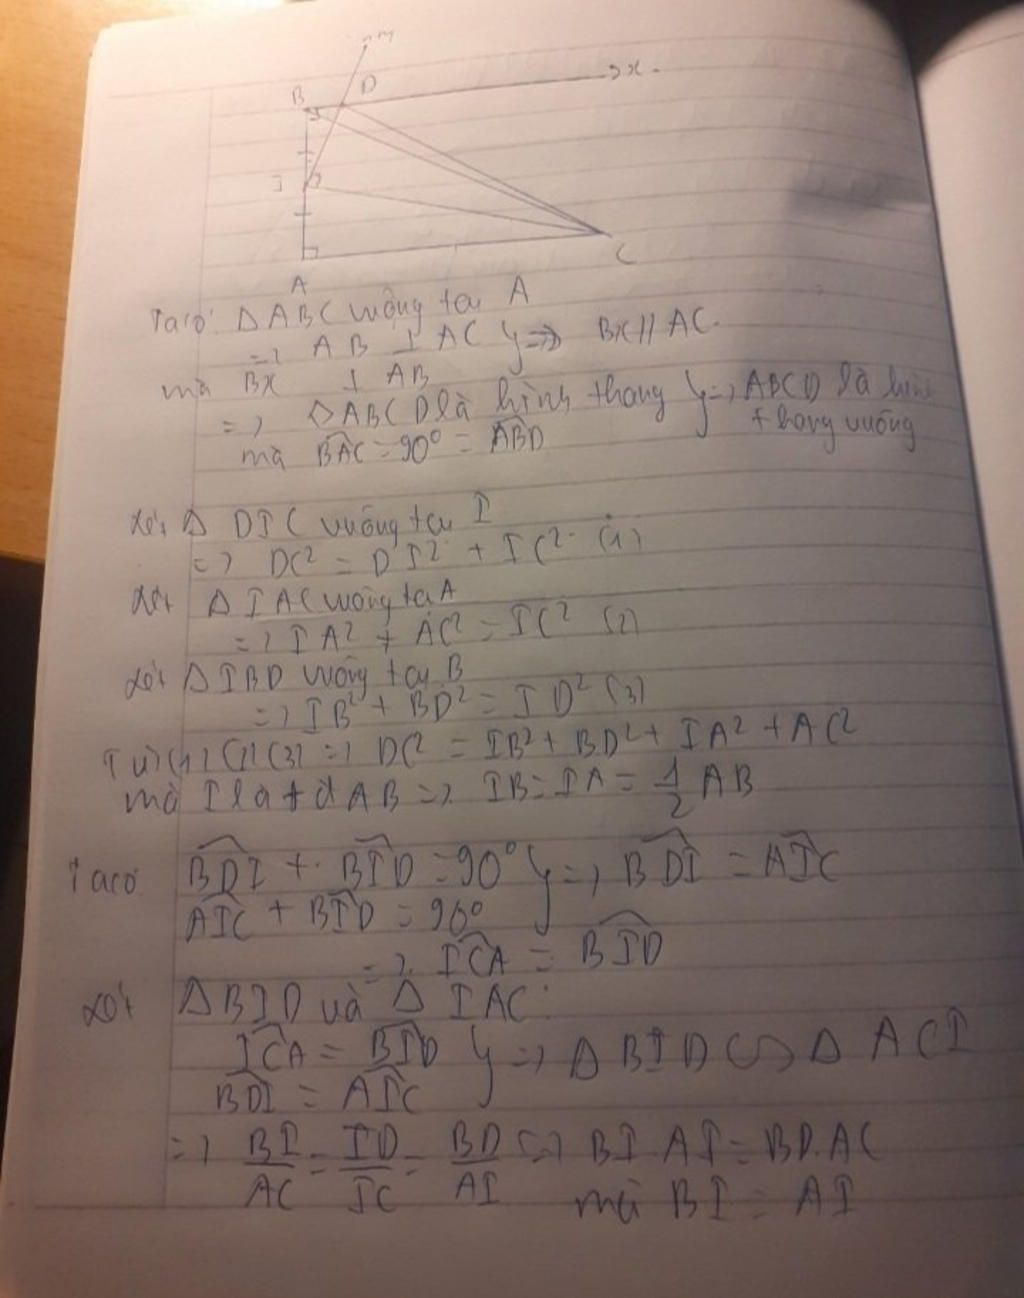 m
B D x
I
A C
Ta có: Δ ABC vuông tại A
=> AB ⊥ AC } => Bx // AC.
mà Bx ⊥ AB
=> ΔABCD là hình thang } => ABCD là hình
mà BAC = 90° = ABD thang vuông
Xét Δ DIC vuông tại I
=> DC² = DI² + IC² (1)
Xét Δ IAC vuông tại A
=> IA² + AC² = IC² (2)
Xét Δ IBD vuông tại B
=> IB² + BD² = ID² (3)
Từ (1) (2) (3) => DC² = IB² + BD² + IA² + AC²
mà I là tđ AB => IB = IA = 1/2 AB
Ta có BDI + BID = 90° } => BDI = AIC
AIC + BID = 90°
=> ICA = BID
Xét ΔBID và Δ IAC:
ICA = BID } => Δ BID ∽ Δ ACI
BDI = AIC
=> BI/AC = ID/IC = BD/AI => BI.AI = BD.AC
mà BI = AI